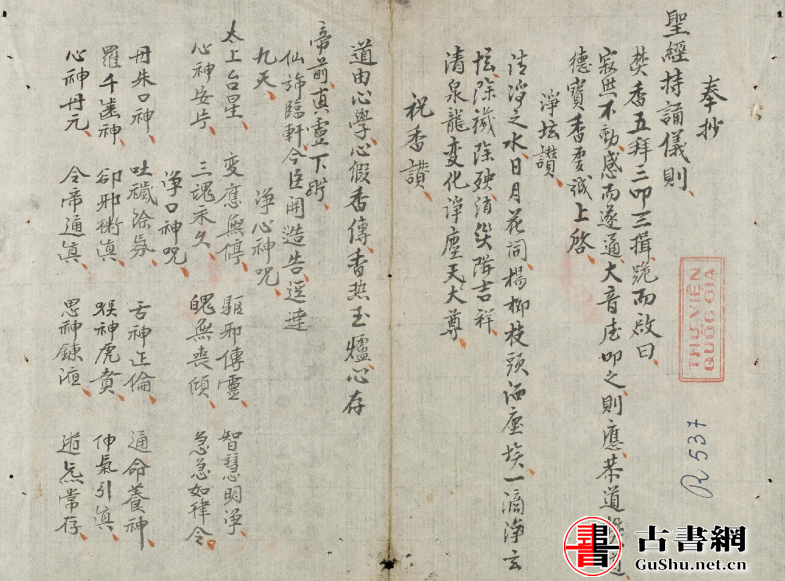 奉抄
聖經持誦儀則
焚香五拜三叩三揖跪而啟曰
寂然不動感而遂通大音希叩之則應恭道
德寶香虔誠上啓
淨坛讃
清淨之水日月花同楊柳枝頭洒塵埃一滴淨玄
坛除穢除殃消災降吉祥
清泉龍变化淨塵天大尊
祝香讃
道由心學心假香傳香热玉爐心存
帝前真灵下盻
仙旆臨軒今臣開造告逕達
九天
淨心神咒
太上台星 变應無停 驅邪傳靈 智慧明净
心神安宁 三魂永久 魄無喪傾 急急如律令
淨口神咒
丹朱口神 吐穢涂氛 舌神正倫 通命養神
羅千齒神 卻邪衛真 喉神虎賁 伸氣引真
心神丹元 令帝通真 思神鍊液 道炁常存
THƯ VIỆN
QUỐC GIA
R 537
古書網
GuShu.net.cn